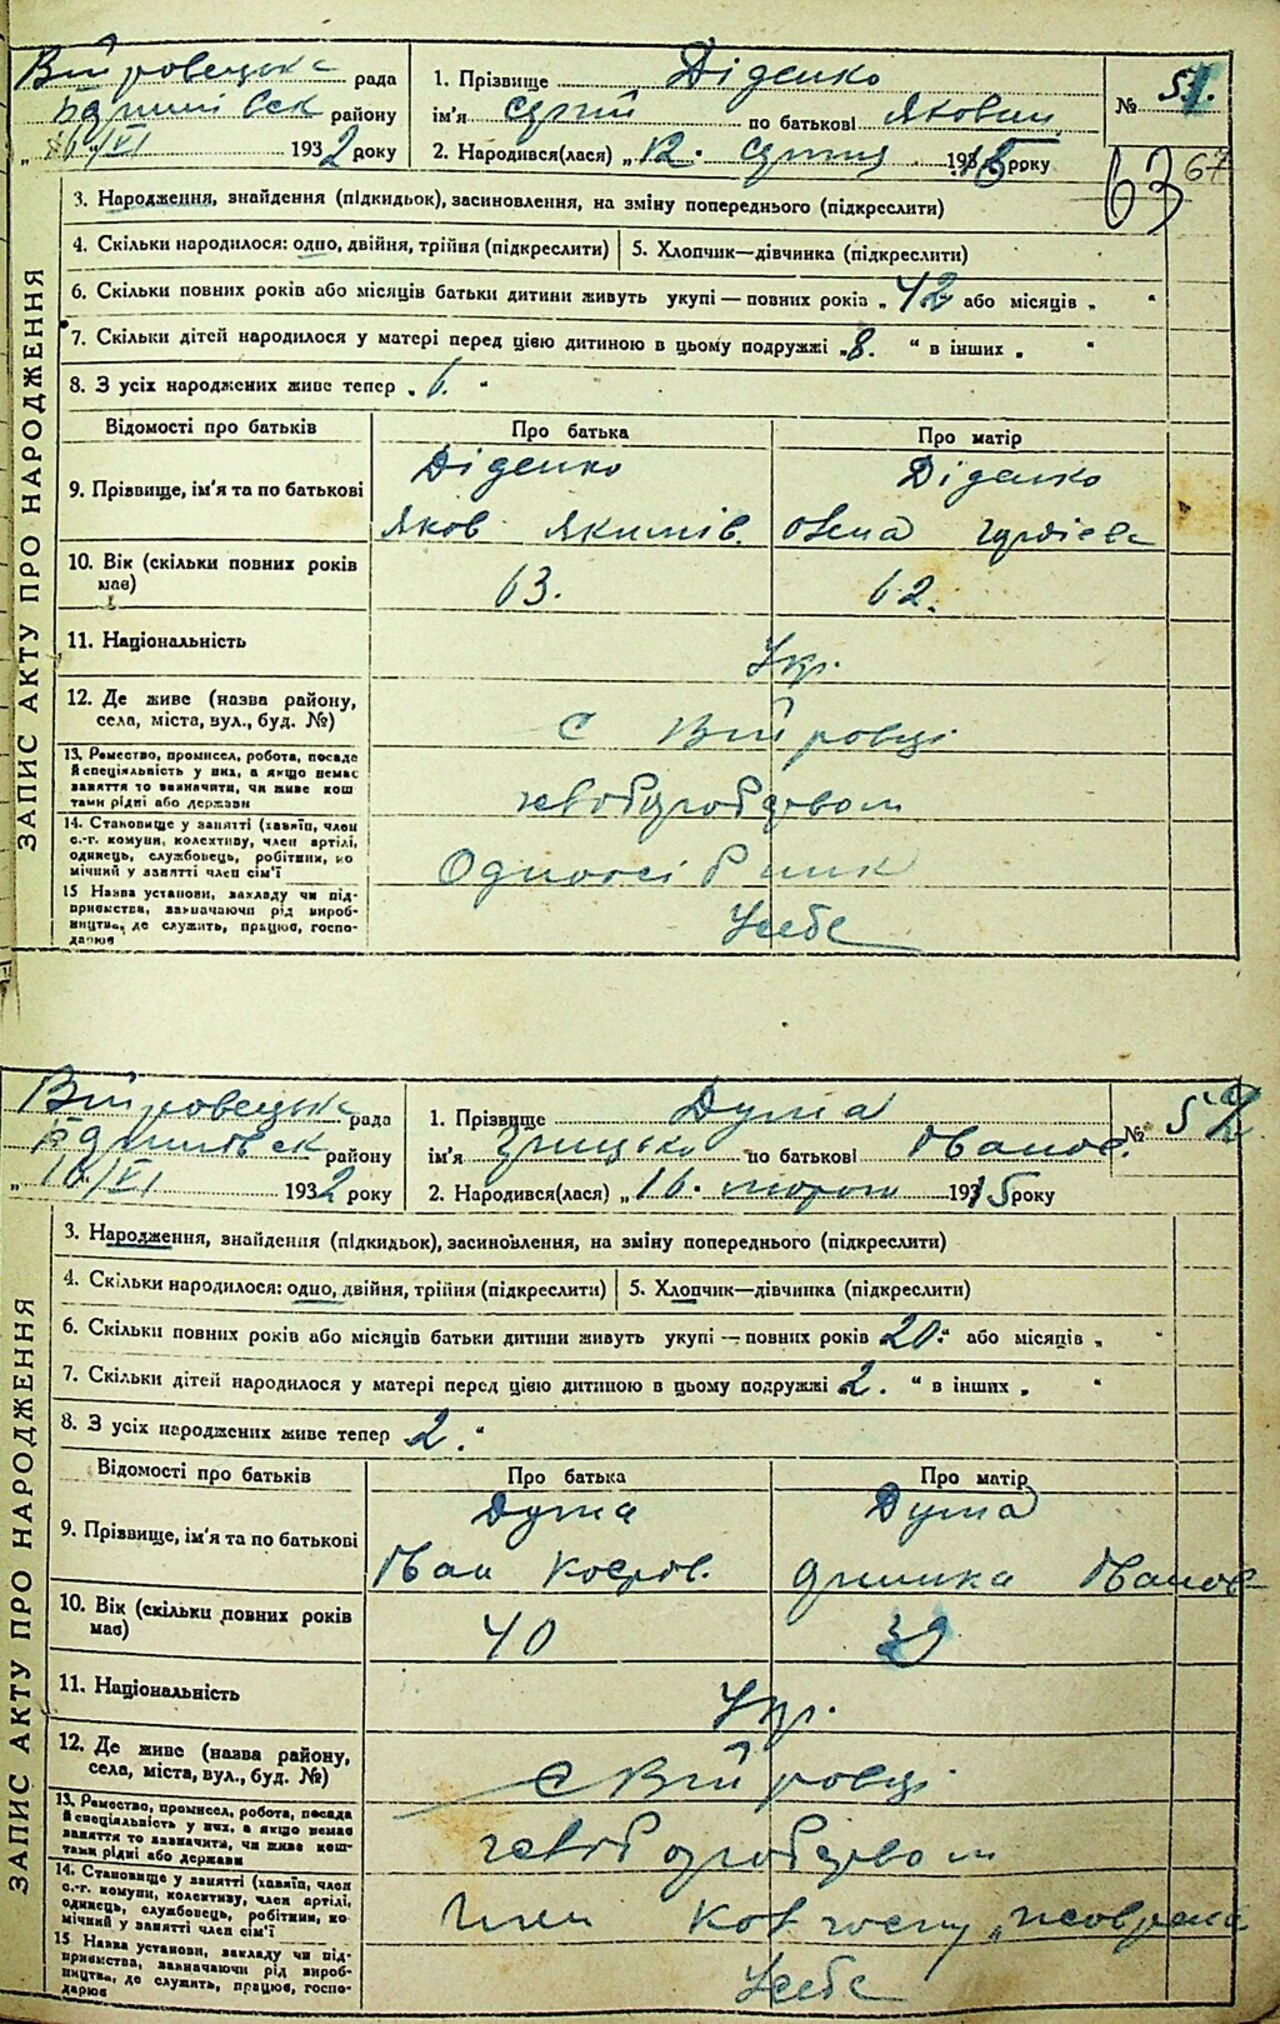 Війтовецька рада
району
16/VI 1932 року
1. Прізвище Діденко
ім'я Сергій по батькові Якович
2. Народився(лася) „12. серпня 1915 року
№ 51.
63 67
ЗАПИС АКТУ ПРО НАРОДЖЕННЯ
3. Народження, знайдення (підкидьок), засиновлення, на зміну попереднього (підкреслити)
4. Скільки народилося: одно, двійня, трійня (підкреслити) 5. Хлопчик—дівчинка (підкреслити)
6. Скільки повних років або місяців батьки дитини живуть укупі — повних років „42 або місяців „ “
7. Скільки дітей народилося у матері перед цією дитиною в цьому подружжі „8. “ в інших „ “
8. З усіх народжених живе тепер „6. “
Відомості про батьків Про батька Про матір
Діденко Діденко
9. Прізвище, ім'я та по батькові
Яков Якимів. Олена
10. Вік (скільки повних років має)
63. 62.
11. Національність Укр.
12. Де живе (назва району,
села, міста, вул., буд. №) с Війтовці
13. Ремество, промисел, робота, посада
й спеціяльність у них, а якщо немає
заняття то зазначити, чи живе кош
тами рідні або держави
хліборобством
14. Становище у занятті (хазяїн, член
с.-г. комуни, колективу, член артілі,
одинець, службовець, робітник, по
мічний у занятті член сім'ї
Одноосібник
15 Назва установи, закладу чи під-
приємства, зазначаючи рід вироб-
ництва, де служить, працює, госпо-
дарює
У себе
Війтовецька рада
району
16/VI 1932 року
1. Прізвище Дума
ім'я Грицько по батькові Іванов.
2. Народився(лася) „16. лютого 1915 року
№ 52
ЗАПИС АКТУ ПРО НАРОДЖЕННЯ
3. Народження, знайдення (підкидьок), засиновлення, на зміну попереднього (підкреслити)
4. Скільки народилося: одно, двійня, трійня (підкреслити) 5. Хлопчик—дівчинка (підкреслити)
6. Скільки повних років або місяців батьки дитини живуть укупі — повних років 20. “ або місяців „ “
7. Скільки дітей народилося у матері перед цією дитиною в цьому подружжі „2. “ в інших „ “
8. З усіх народжених живе тепер 2. “
Відомості про батьків Про батька Про матір
Дума Дума
9. Прізвище, ім'я та по батькові
Іван Іванов
10. Вік (скільки повних років має)
40 39
11. Національність Укр.
12. Де живе (назва району,
села, міста, вул., буд. №) с Війтовці
13. Ремество, промисел, робота, посада
й спеціяльність у них, а якщо немає
заняття то зазначити, чи живе кош-
тами рідні або держави
хліборобством
14. Становище у занятті (хазяїн, член
с.-г. комуни, колективу, член артілі,
одинець, службовець, робітник, по
мічний у занятті член сім'ї
Член колгоспу
15 Назва установи, закладу чи під-
приємства, зазначаючи рід вироб-
ництва, де служить, працює, госпо-
дарює
У себе